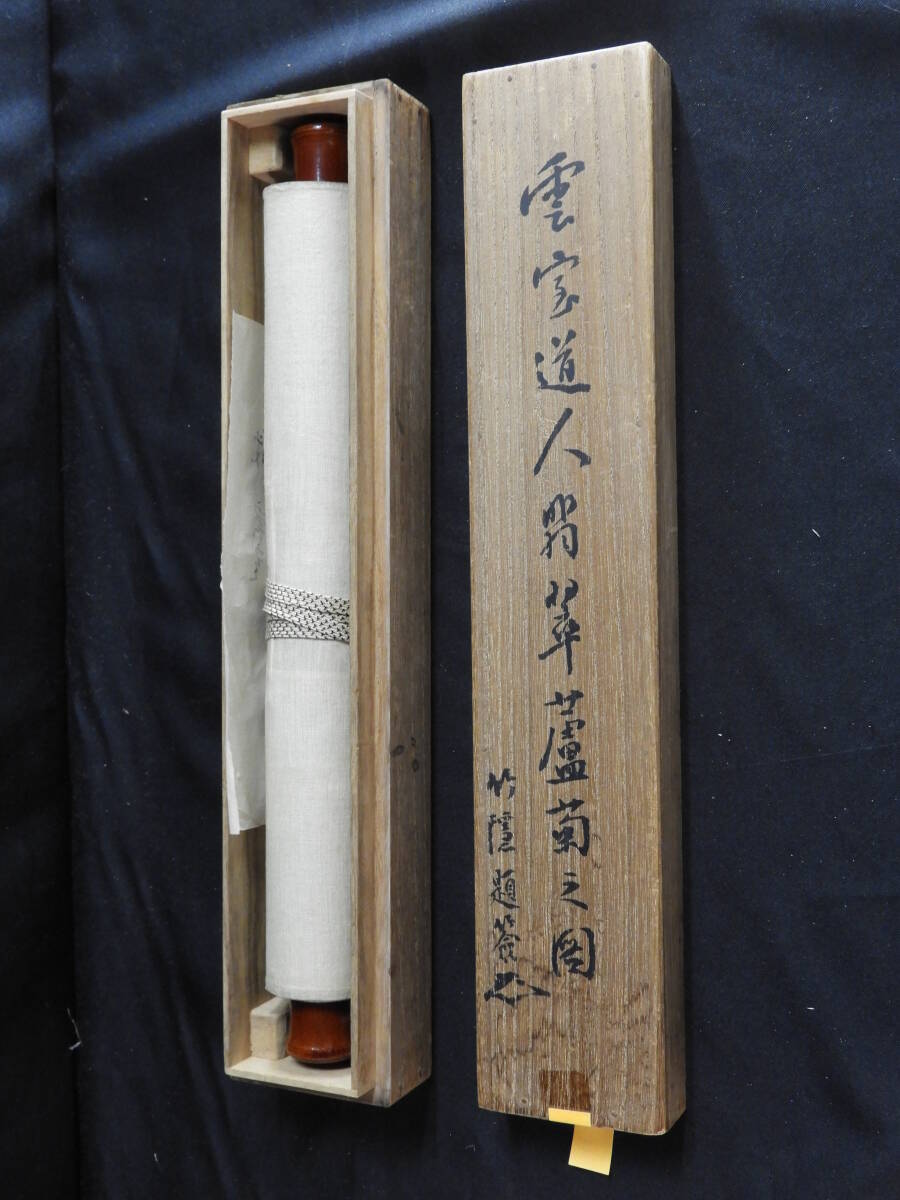 雲室道人翡翠蘆菊之図
竹隠題簽